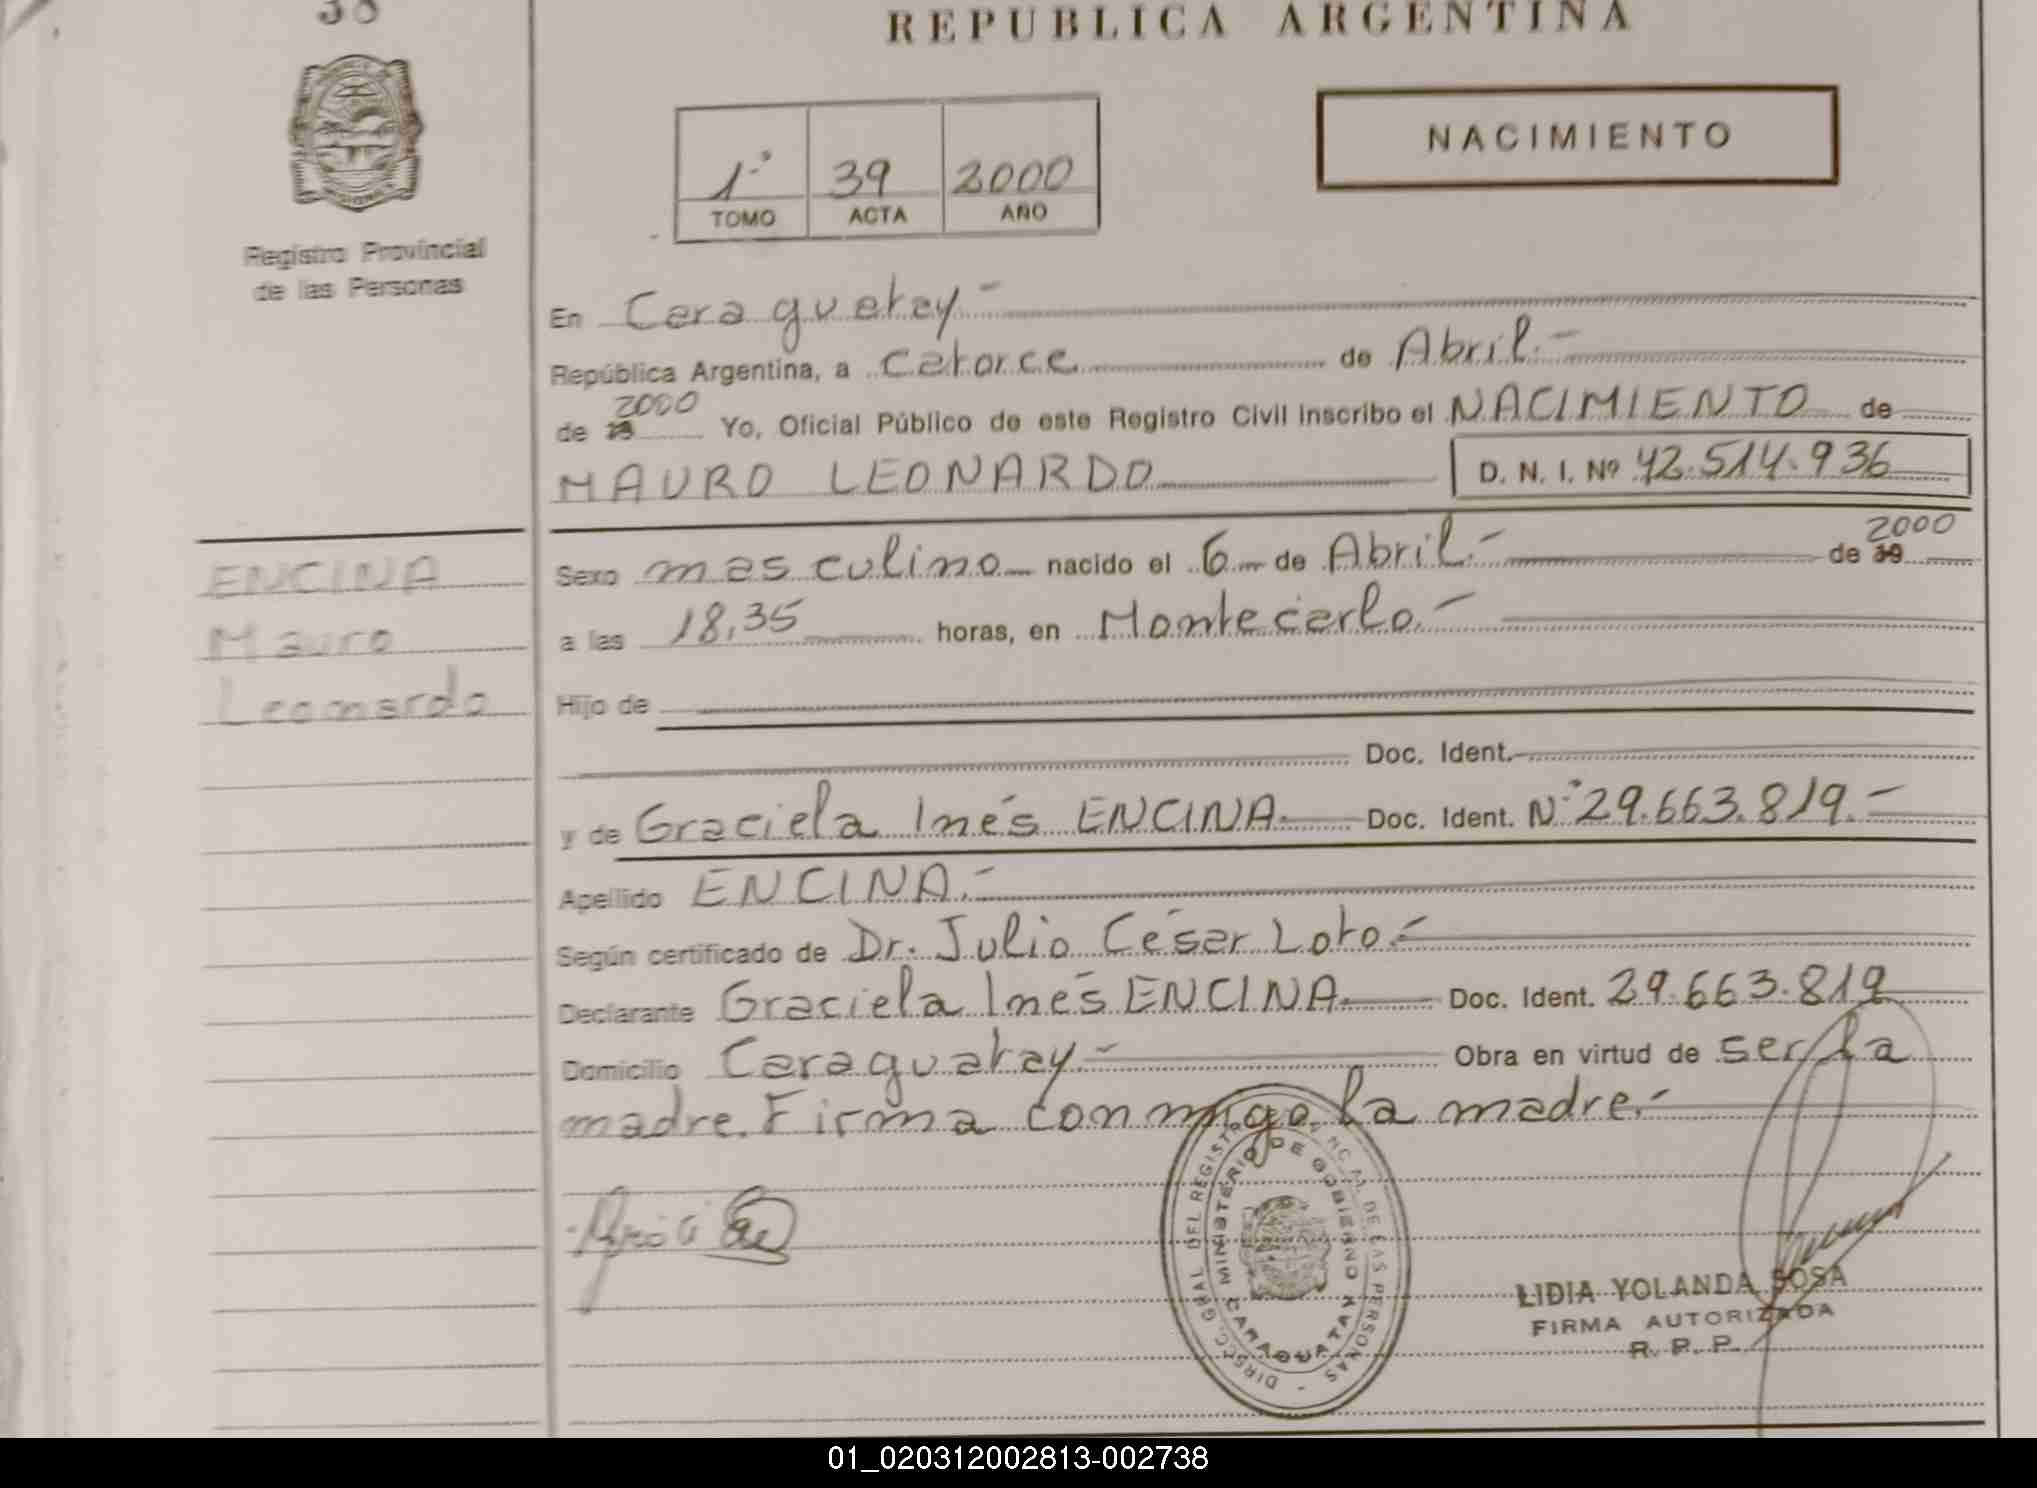 38
REPUBLICA ARGENTINA
NACIMIENTO
1º 39 2000
TOMO ACTA AÑO
Registro Provincial
de las Personas
En Caraguatay.-
República Argentina, a catorce de Abril.-
de 19 2000 Yo, Oficial Público de este Registro Civil inscribo el NACIMIENTO de
MAURO LEONARDO D. N. I. Nº 42.514.936
ENCINA
Mauro
Leonardo
Sexo masculino nacido el 6 de Abril.- de 19 2000
a las 18,35 horas, en Montecarlo.-
Hijo de
Doc. Ident.
y de Graciela Inés ENCINA Doc. Ident. Nº 29.663.819.-
Apellido ENCINA.-
Según certificado de Dr. Julio César Loto.-
Declarante Graciela Inés ENCINA Doc. Ident. 29.663.819
Domicilio Caraguatay.- Obra en virtud de ser la
madre. Firma conmigo la madre.-
DIREC. GRAL DEL REGISTRO DE LAS PERSONAS
MINISTERIO DE GOBIERNO
CARAGUATAY
LIDIA YOLANDA SOSA
FIRMA AUTORIZADA
R. P. P.
01_020312002813-002738